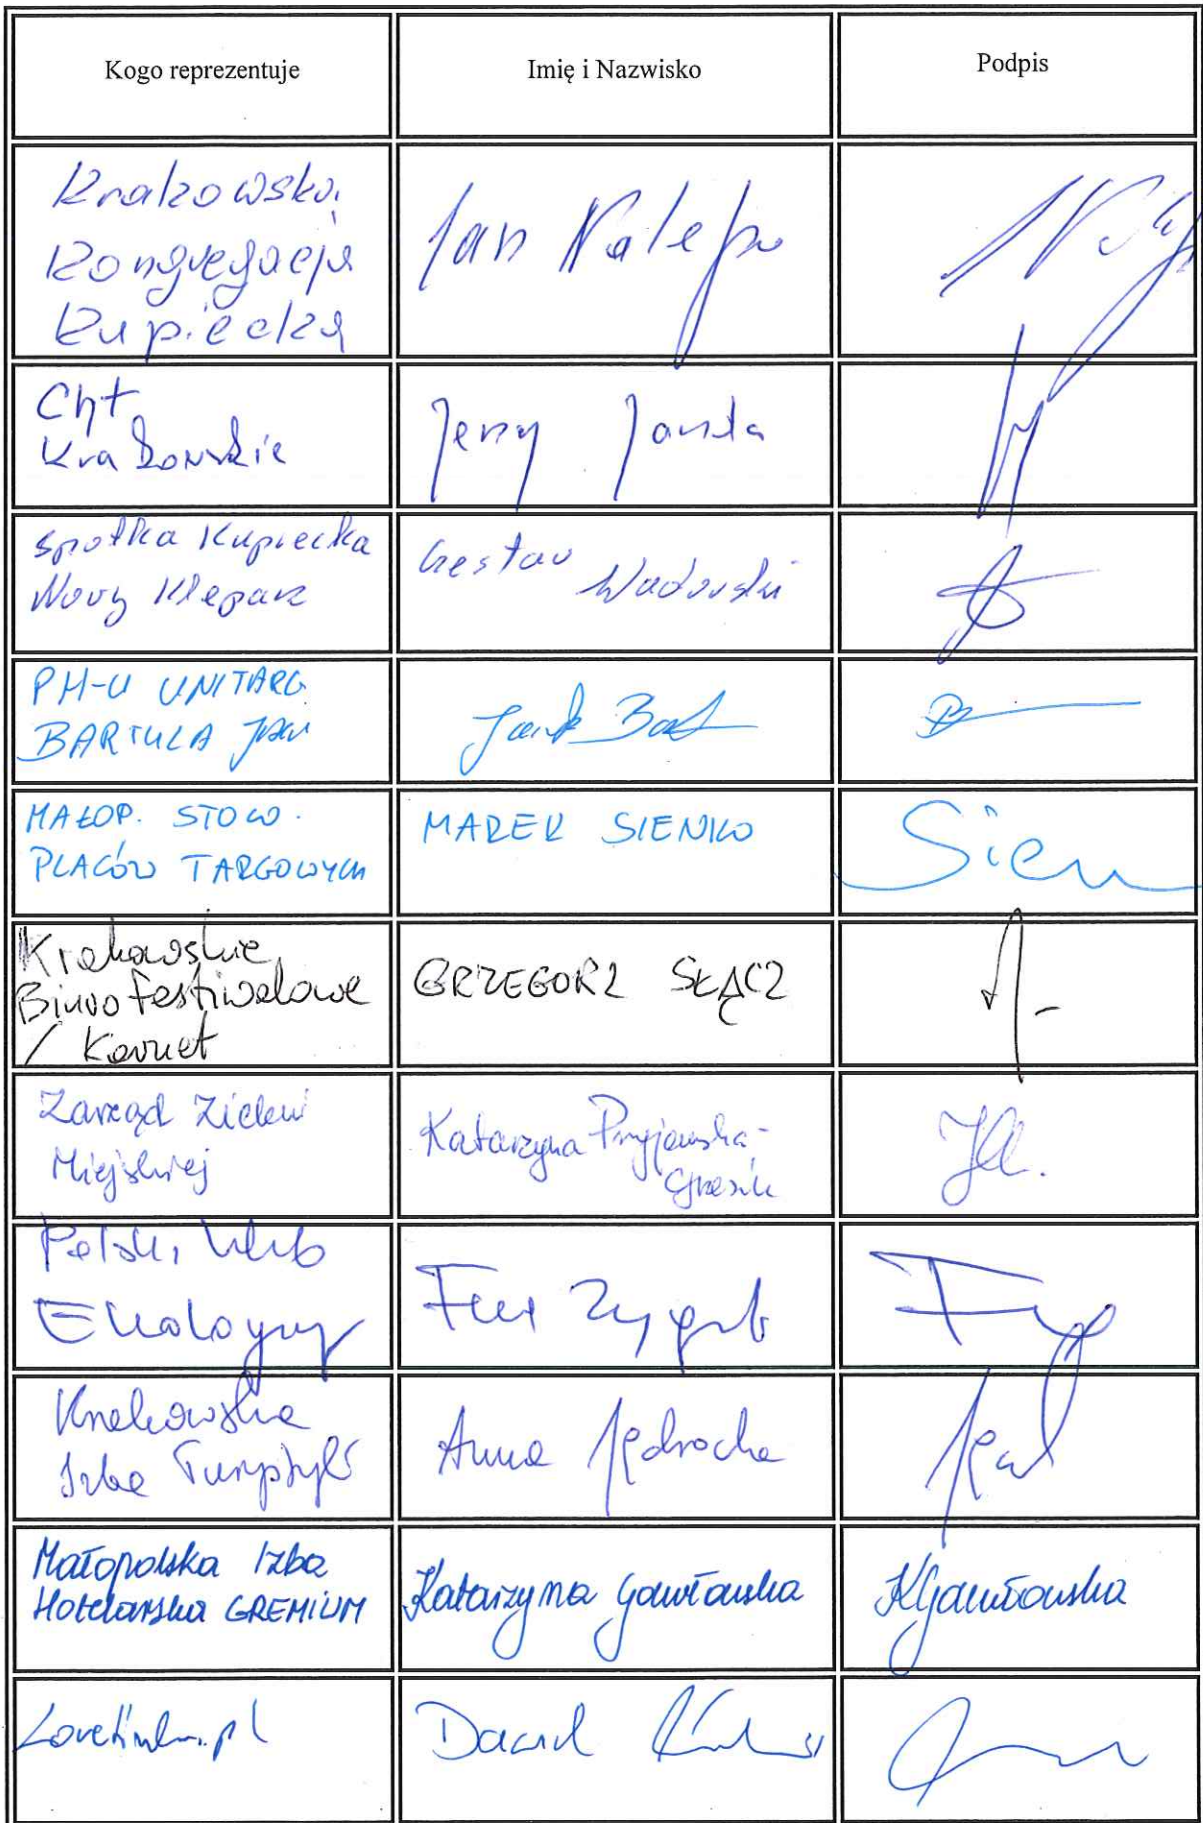 Kogo reprezentuje
Imię i Nazwisko
Podpis
Krakowska
Kongregacja
Kupiecka
Jan Nalepa
Cht
Krakowskie
Jerzy Janda
Spółka Kupiecka
Nowy Kleparz
Wadowski
PH-U UNITARG
BARTULA JAN
MAŁOP. STOW.
PLACÓW TARGOWYCH
MAREK SIENKO
Sien
Krakowskie
Biuro Festiwalowe
/ Karnet
GRZEGORZ SŁĄCZ
Zarząd Zieleni
Miejskiej
Katarzyna Przyjemska-
Grzesik
Polski Klub
Ekologiczny
Krakowska
Izba Turystyki
Anna Jędrocha
Małopolska Izba
Hotelarska GREMIUM
Katarzyna Gawłowska
KGawłowska
Dawid